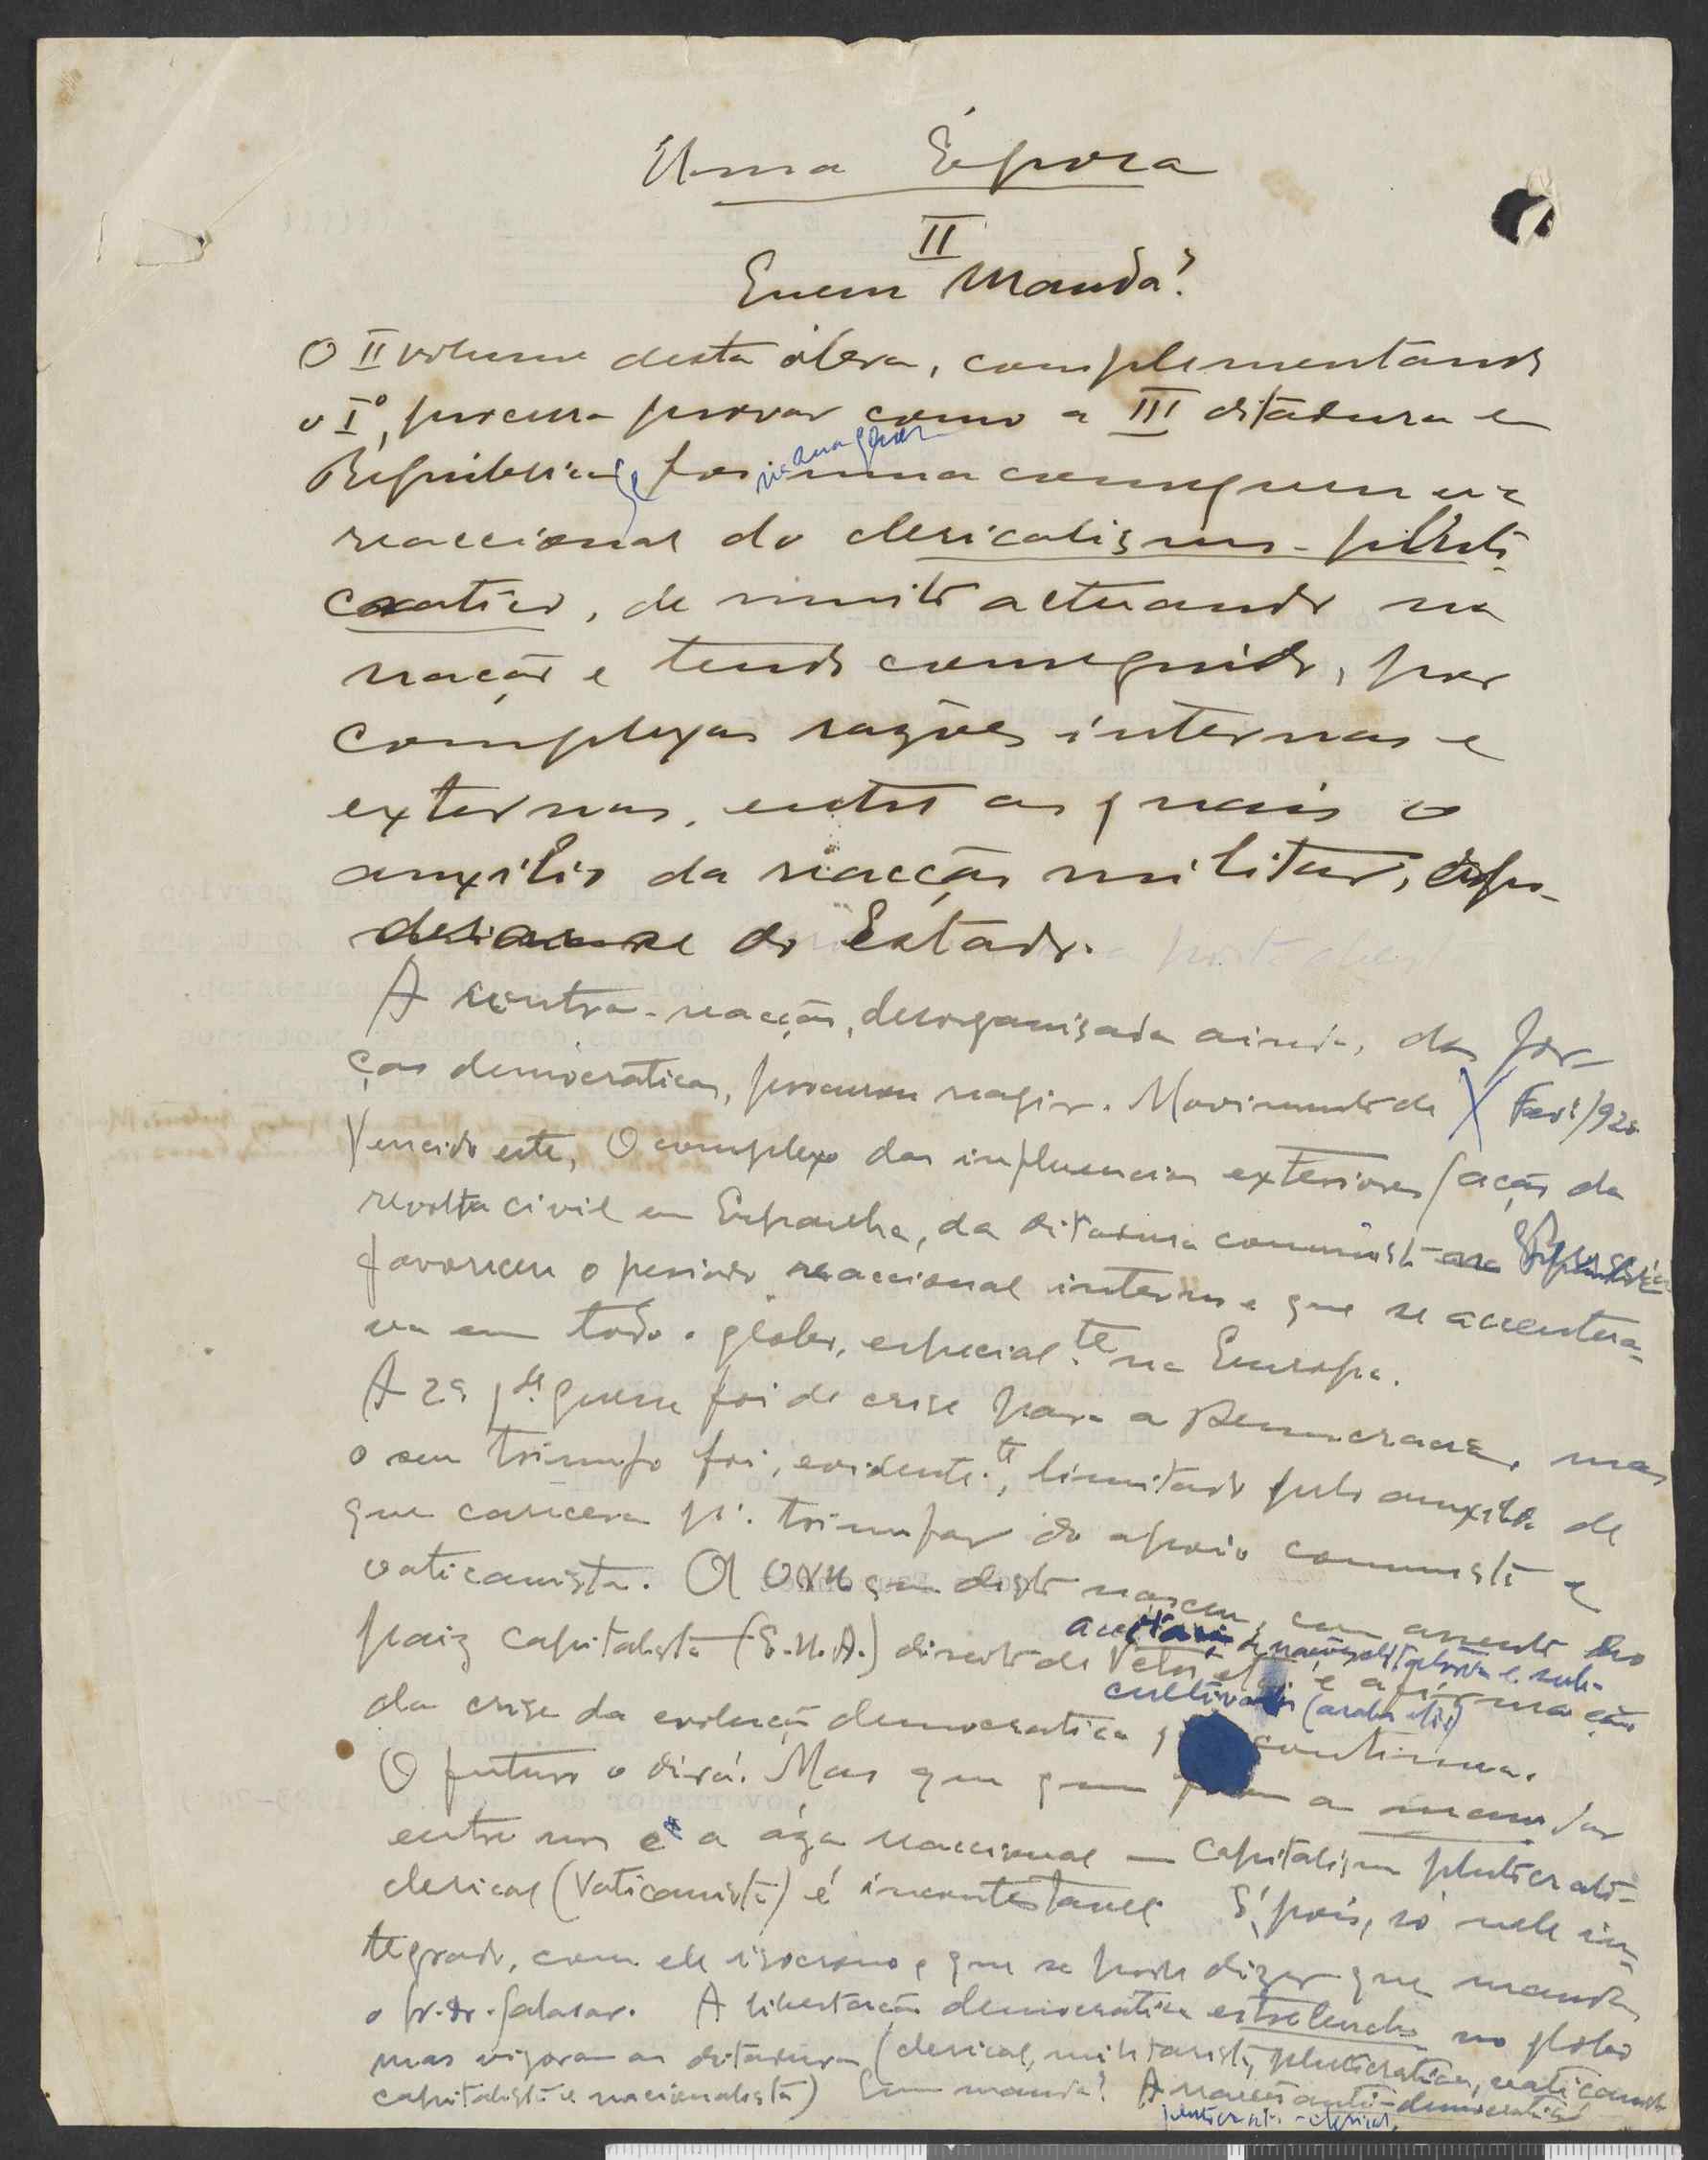 Uma Época
II
Quem Manda?
O II volume desta obra, complementando
o Iº, procura provar como a III ditadura em
República, foi uma consequencia
na sua genese
reaccional do clericalismo-pluto
cratico, de muito actuando na
nação e tendo conseguido, por
complexas razões internas e
externas, entre as quais o
auxilio da reacção militar, apo-
do Estado.
A contra-reacção, desorganisada ainda, das for-
ças democraticas, procurou reagir. Movimento de X Fev:/92
Vencido este, O complexo das influencias exteriores (ação da
revolta civil em Espanha, da ditadura comunista
favoreceu o periodo reaccional interno e que se accentua-
va em todo o globo, especial.te na Europa.
A 2ª gde. guerra foi de crise para a Democracia, mas
o seu triunfo foi, evidente.te, limitado pelo auxilio de
que carecera pª. triunfar do apoio comunista e
vaticanista. A ONU que disto nasceu, com assento no
paiz capitalista (E.U.A.) direito de Veto, etc. e afirmação
aceitação de nações e sub-
cultivadas (arabes etc)
da crise da evolução democratica q continua.
O futuro o dirá. Mas que quem a mandar
entre nos é a asa reaccional — capitalismo plutocrati-
clerical (Vaticanista) é incontestavel. É, pois, só nele in-
tegrado, com ele isocrono, que se pode dizer que manda
o sr. dr. Salasar. A libertação democratica no globo
mas vigoram as ditaduras (clerical, militarista, plutocratica, vaticanista
capitalista e nacionalista) Quem manda? A reacção anti-democratica
plutocrati-clerical.